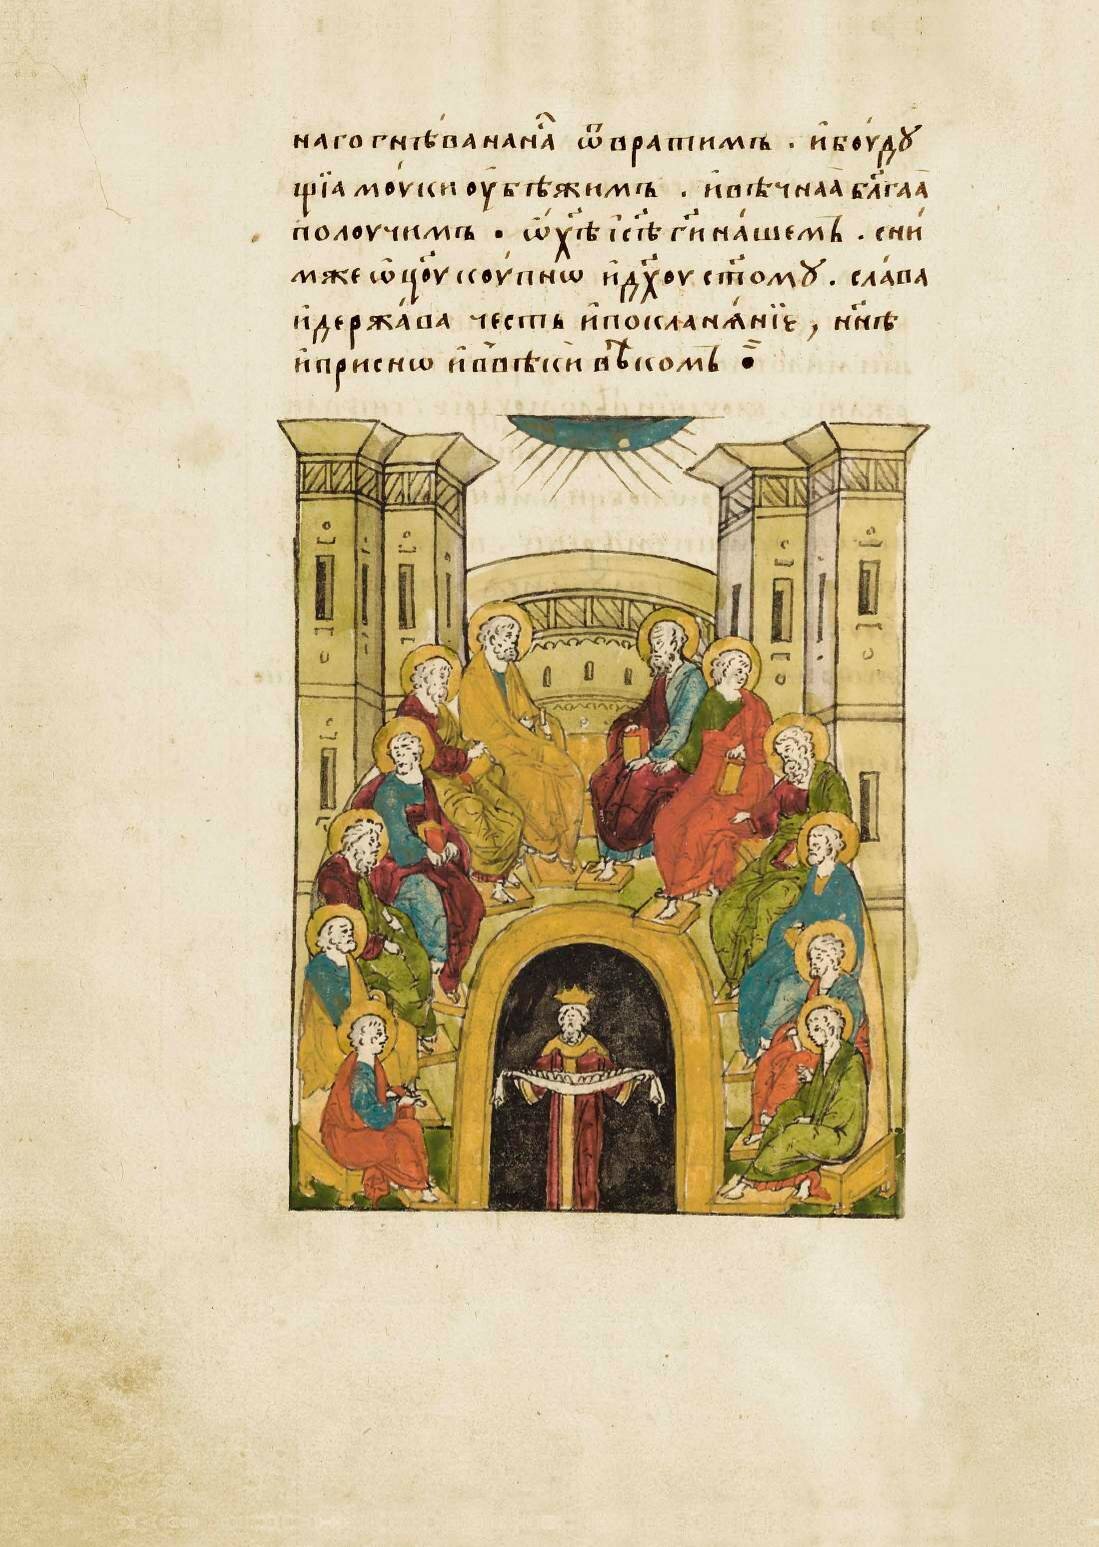 наго гнѣва на на́съ ѿврати́мъ . и҆ боу́ду
щїа моу́ки оу҆бѣжи́мъ . и҆ вѣ́чнаа бл҃га́а
полоучи́мъ . ѡ҆ хⷭ҇ѣ і҆с҃ѣ гⷭ҇и на́шемъ . с ни́
мже ѻ҆ц҃оу̀ коу́пнѡ и҆ дх҃оу ст҃о́мꙋ . сла́ва
и҆ держа́ва че́сть и҆ покланѧ́нїе , нн҃ѣ
и҆ при́снѡ и҆ въ вѣ́ки вѣко́мъ :